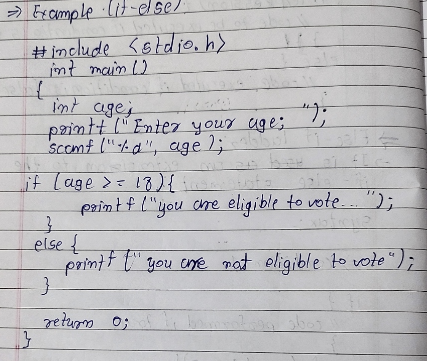 ⇒ Example (if-else)
#include <stdio.h>
int main()
{
int age;
printf ("Enter your age; ");
scanf ("%d", age);
if (age >= 18){
printf ("you are eligible to vote...");
}
else {
printf (" you are not eligible to vote");
}
return 0;
}